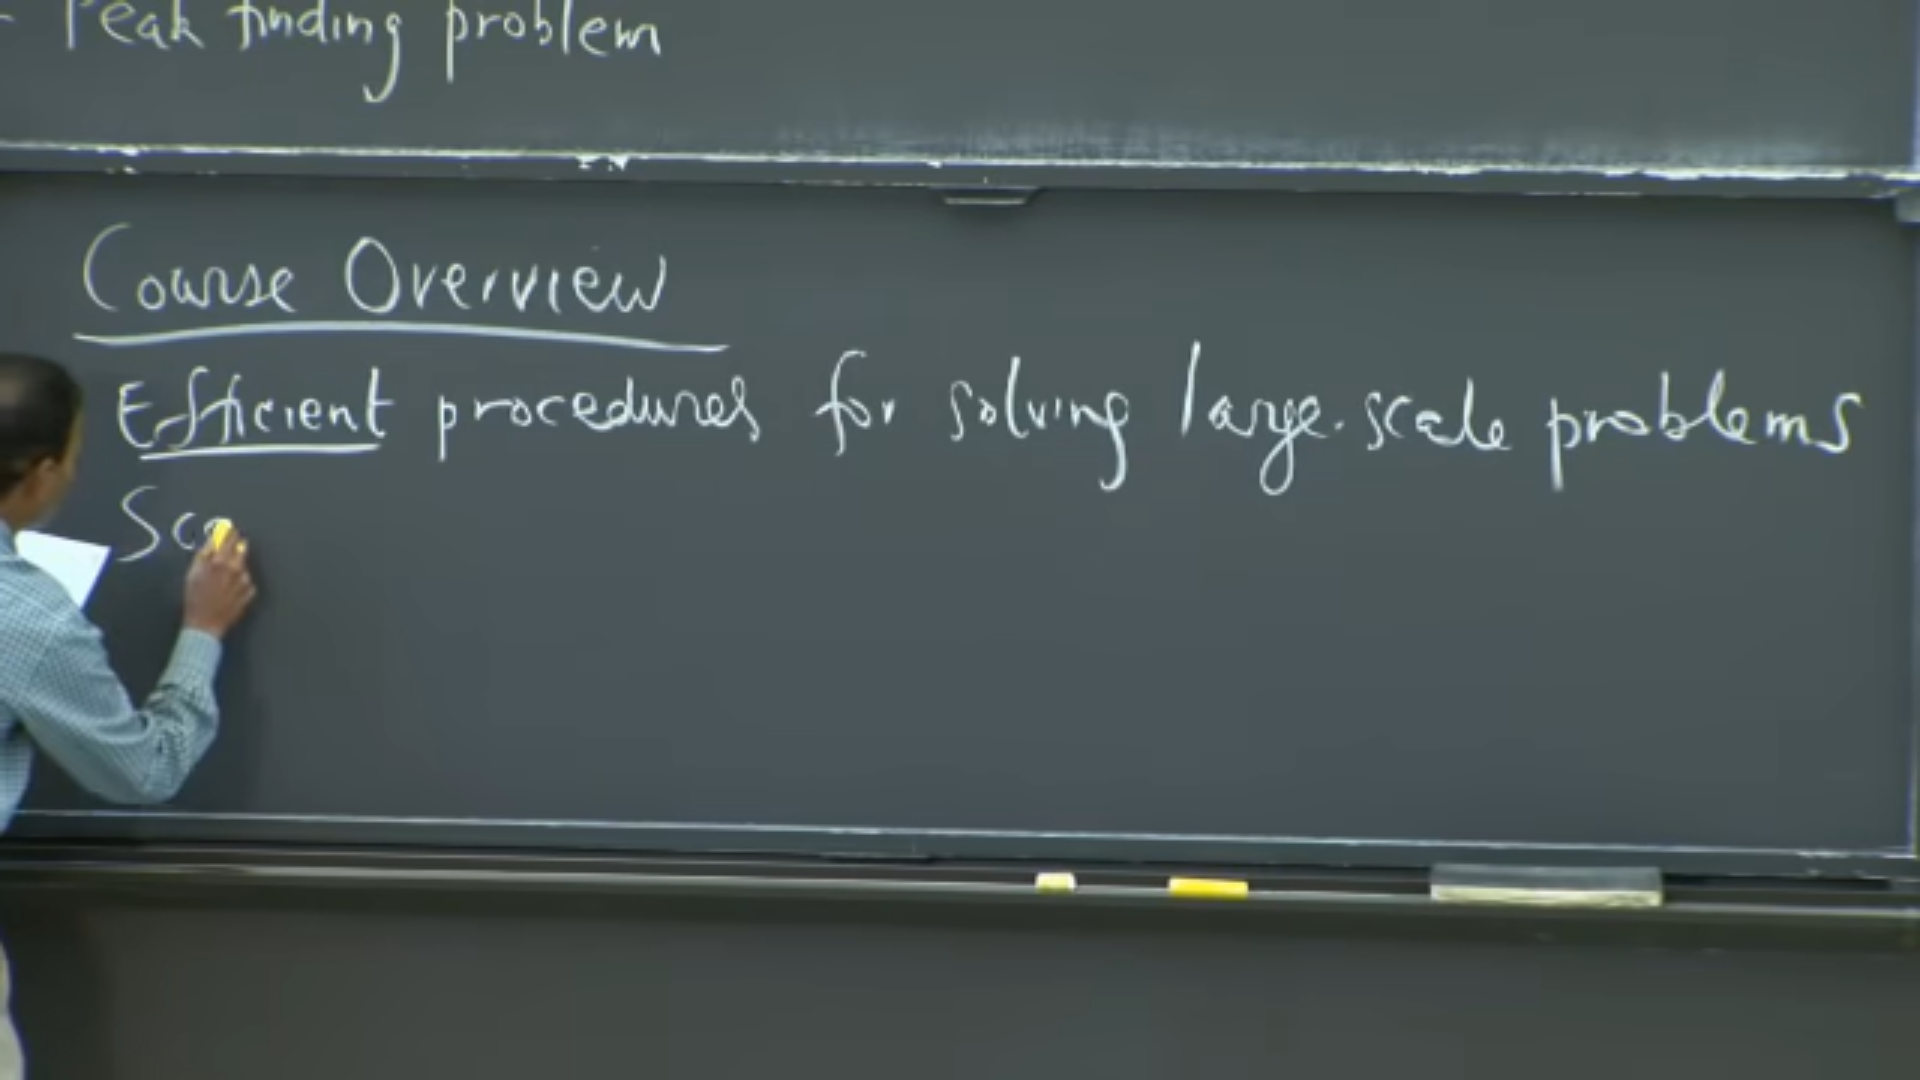 - Peak finding problem
Course Overview
Efficient procedures for solving large-scale problems
Sca